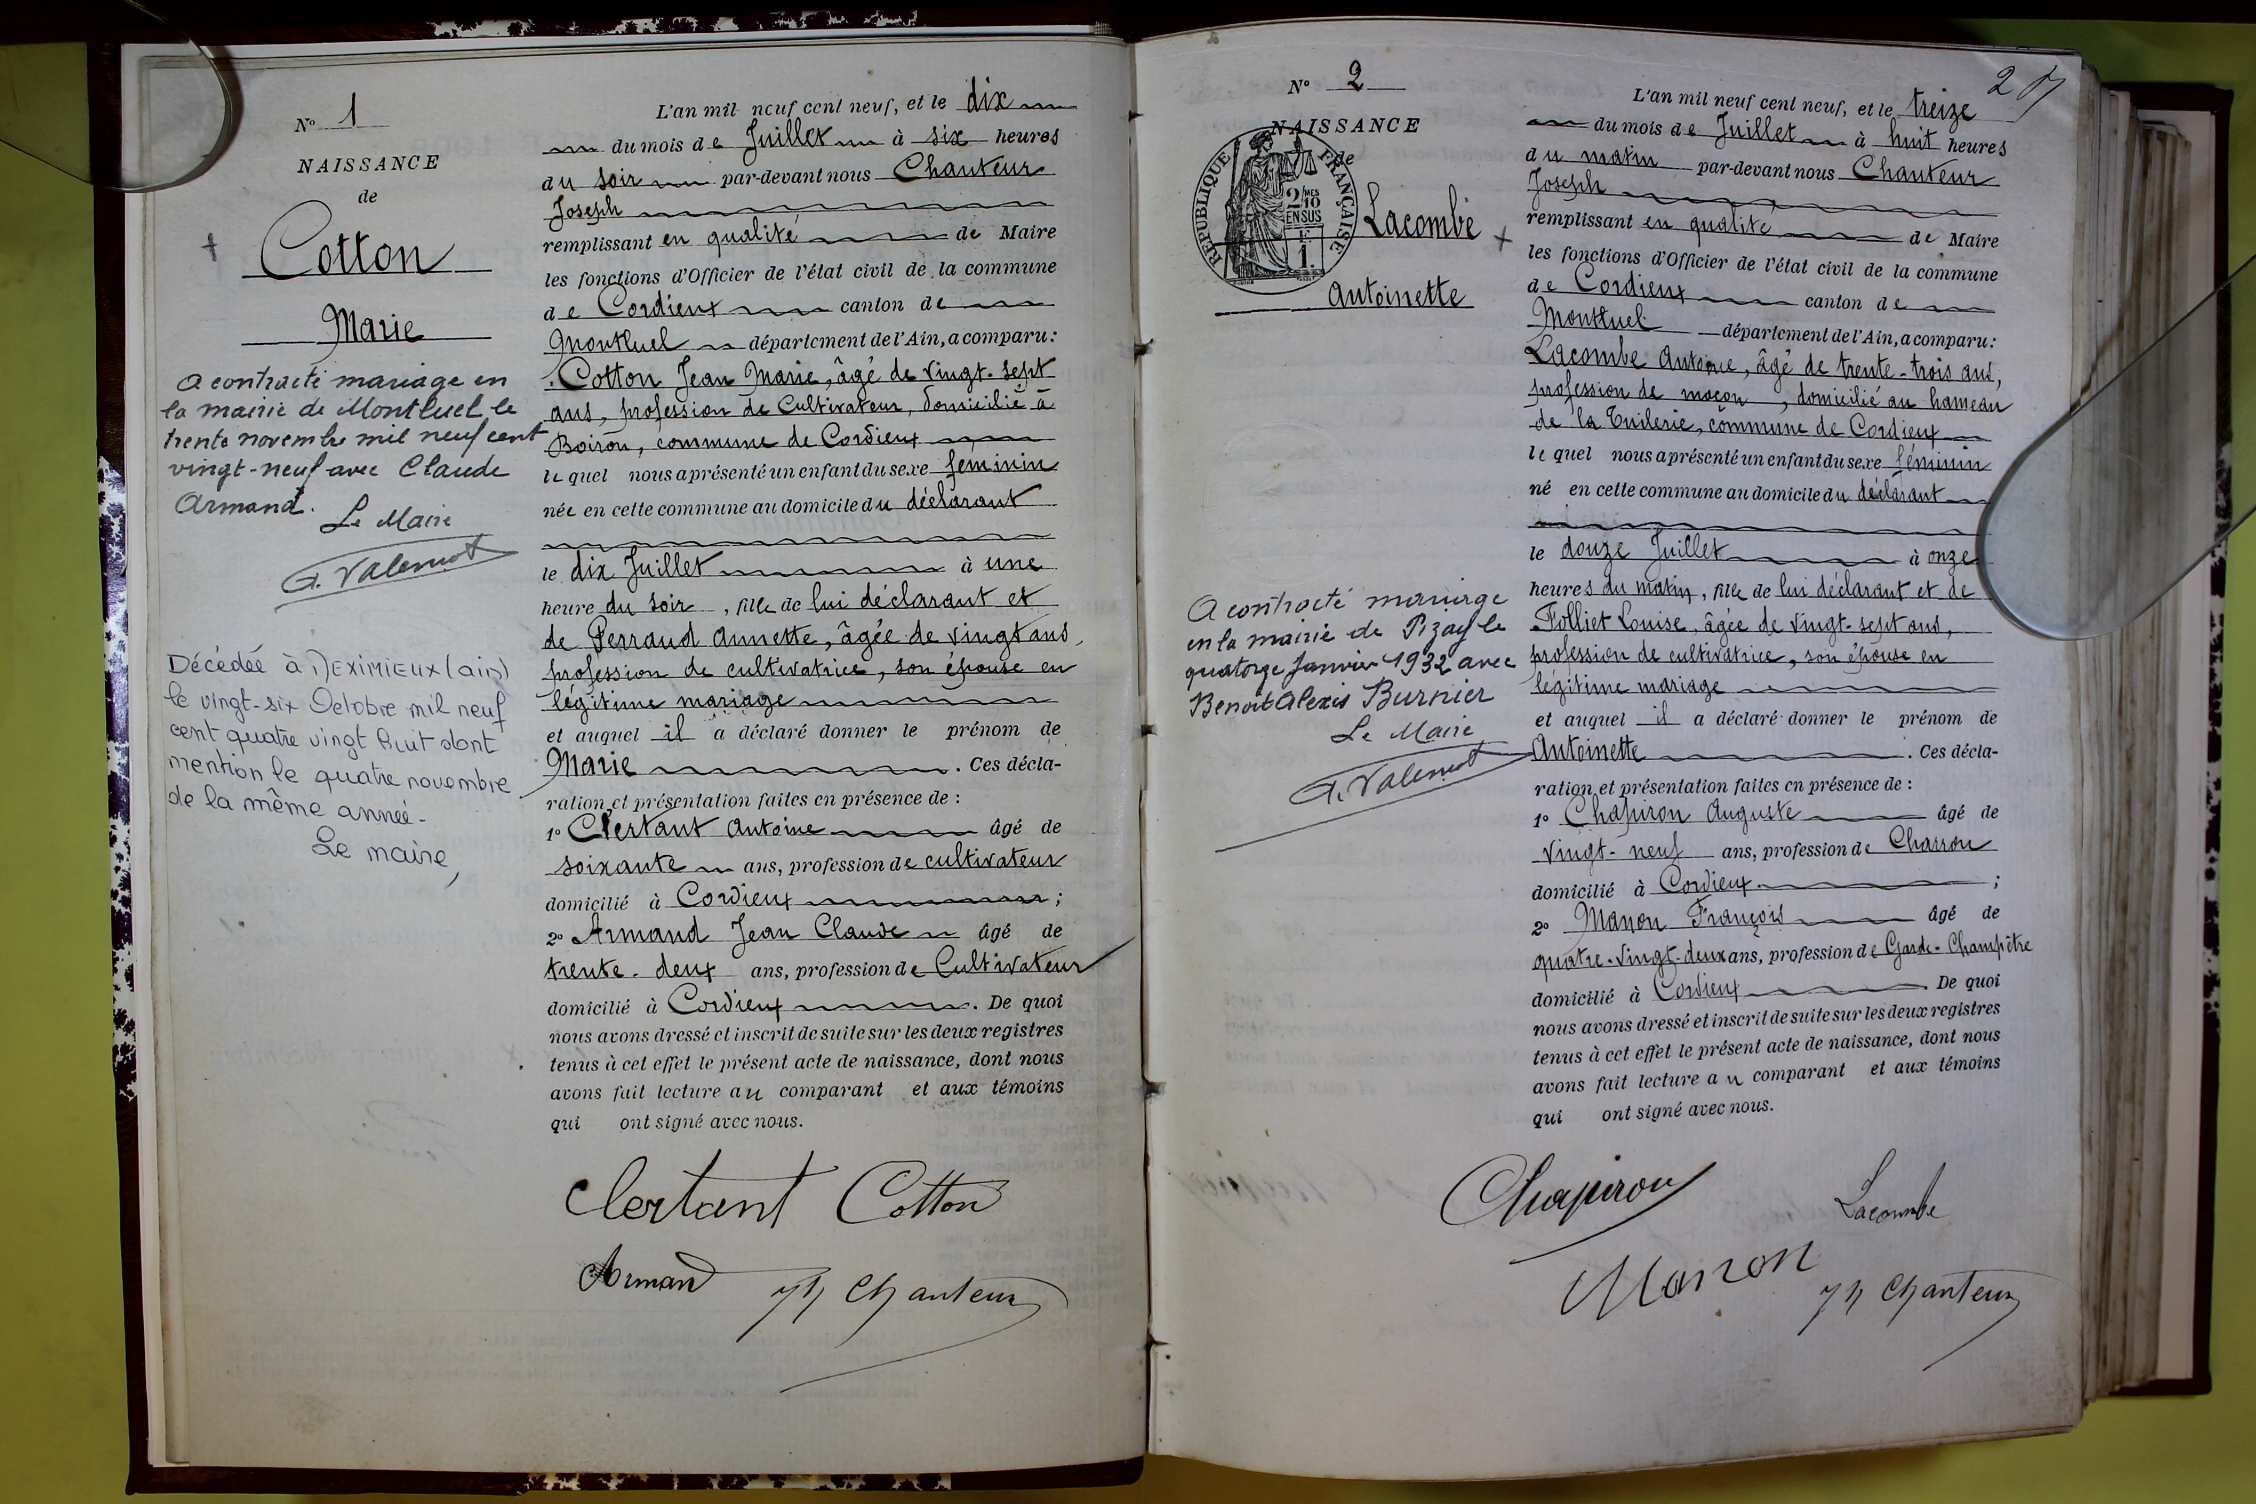 N° 1
NAISSANCE
de
Cotton
Marie
A contracté mariage en
la mairie de Montluel le
trente novembre mil neuf cent
vingt-neuf avec Claude
Armand.
Le Maire
Décédée à MEXIMIEUX (ain)
le vingt-six Octobre mil neuf
cent quatre vingt huit dont
mention le quatre novembre
de la même année.
Le maire,
L'an mil neuf cent neuf, et le dix
du mois de Juillet à six heures
du soir par-devant nous Chanteur
Joseph
remplissant en qualité de Maire
les fonctions d'Officier de l'état civil de la commune
de Cordieux canton de
Montluel département de l'Ain, a comparu:
Cotton Jean Marie, âgé de vingt-sept
ans, profession de Cultivateur, domicilié à
Boiron, commune de Cordieux
lequel nous a présenté un enfant du sexe féminin
née en cette commune au domicile du déclarant
le dix Juillet à une
heure du soir, fille de lui déclarant et
de Perraud Annette, âgée de vingt ans,
profession de cultivatrice, son épouse en
légitime mariage
et auquel il a déclaré donner le prénom de
Marie. Ces décla-
ration et présentation faites en présence de :
1° Clertant Antoine âgé de
soixante ans, profession de cultivateur
domicilié à Cordieux ;
2° Armand Jean Claude âgé de
trente-deux ans, profession de Cultivateur
domicilié à Cordieux. De quoi
nous avons dressé et inscrit de suite sur les deux registres
tenus à cet effet le présent acte de naissance, dont nous
avons fait lecture au comparant et aux témoins
qui ont signé avec nous.
Clertant Cotton
Armand Jh Chanteur
N° 2
NAISSANCE
de
RÉPUBLIQUE FRANÇAISE
2/10MES
EN SUS
F
1.
Lacombe
Antoinette
A contracté mariage
en la mairie de Pizay le
quatorze Janvier 1932 avec
Benoit Alexis Burnier
Le Maire
L'an mil neuf cent neuf, et le treize
du mois de Juillet à huit heures
du matin par-devant nous Chanteur
Joseph
remplissant en qualité de Maire
les fonctions d'Officier de l'état civil de la commune
de Cordieux canton de
Montluel département de l'Ain, a comparu:
Lacombe Antoine, âgé de trente-trois ans,
profession de maçon, domicilié au hameau
de la Tuilerie, commune de Cordieux
lequel nous a présenté un enfant du sexe féminin
né en cette commune au domicile du déclarant
le douze Juillet à onze
heures du matin, fille de lui déclarant et de
Folliet Louise, âgée de vingt-sept ans,
profession de cultivatrice, son épouse en
légitime mariage
et auquel il a déclaré donner le prénom de
Antoinette. Ces décla-
ration et présentation faites en présence de :
1° Chapiron Auguste âgé de
vingt-neuf ans, profession de Charron
domicilié à Cordieux ;
2° Manon François âgé de
quatre-vingt-deux ans, profession de Garde-Champêtre
domicilié à Cordieux. De quoi
nous avons dressé et inscrit de suite sur les deux registres
tenus à cet effet le présent acte de naissance, dont nous
avons fait lecture au comparant et aux témoins
qui ont signé avec nous.
Chapiron Lacombe
Manon Jh Chanteur